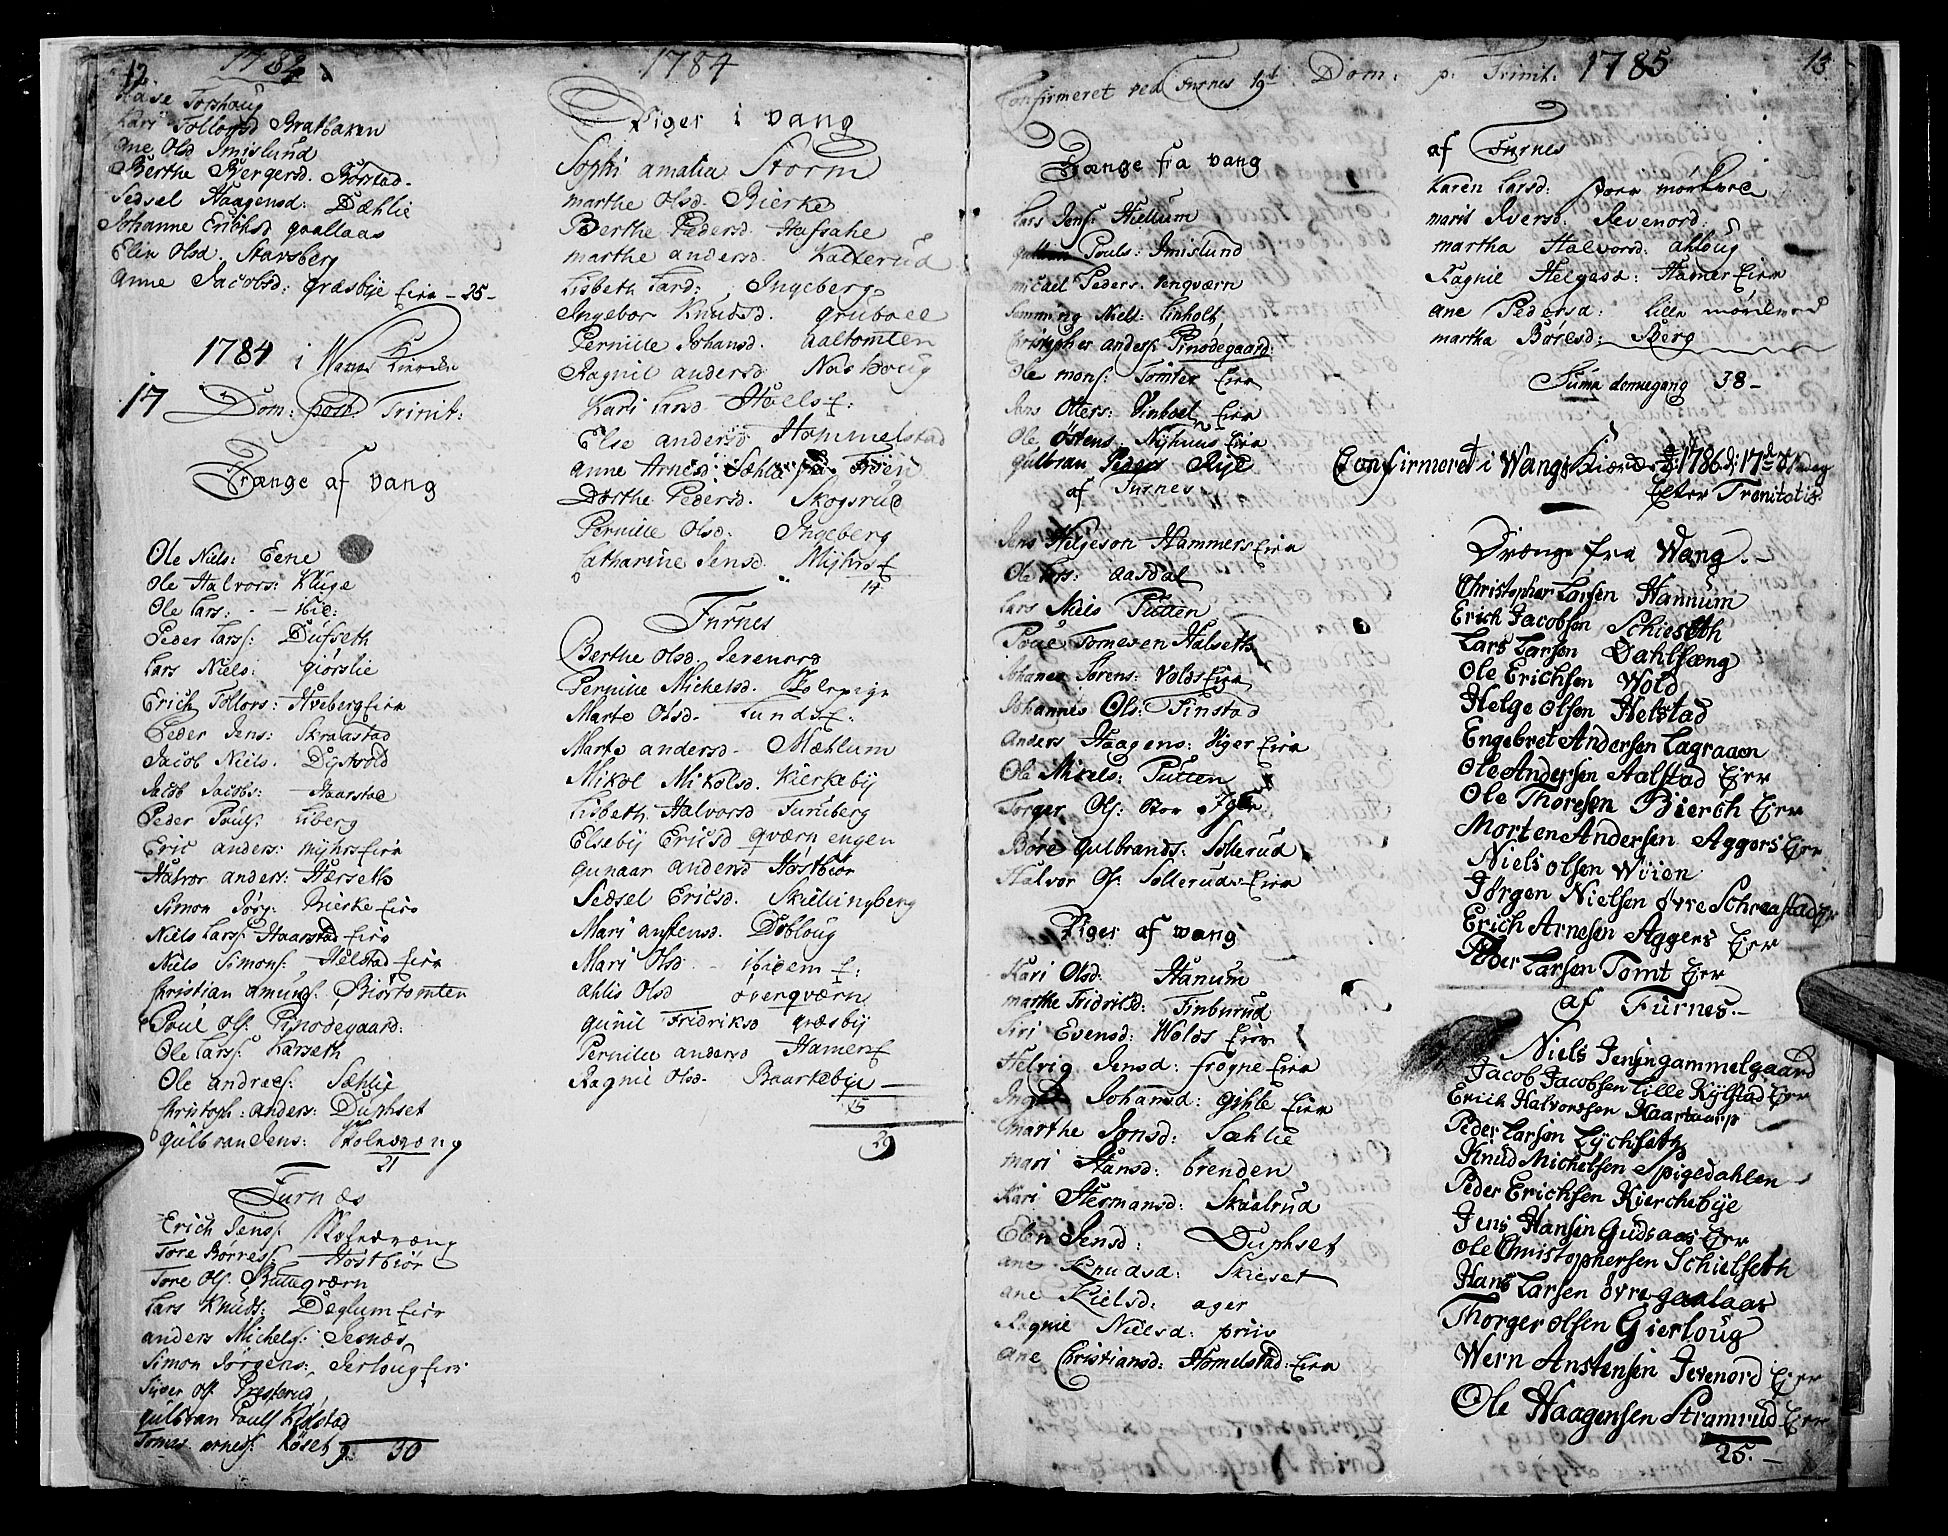 12.
1784
Aase Torshoug
Kari Tollofsd Bratbaken
Ane Olsd Imislund
Berthe Bergersd. Børstad
Sedsel Haagensd: Dæhlie
Johanne Erichsd gaallaas
Elin Olsd. Stavsberg
Anne Jacobsd: græsbye Eier - 25 -
1784 i Wangs Kierche
17 Dom: post Trinit:
Drænge af vang
Ole Niels: Eene
Ole Halvors: Kluge
Ole Lars: - - ibid:
Peder Larss: Dufseth
Lars Niels: giørslie
Erich Tollors: Hveberg Eier
Peder Jens: Skraastad
Jacob Niels: Dystvold
Jacob Jacobs: Haarstad
Peder Pouls: Liberg
Eric anders: myhrs Eier
Halvor anders: Hærseth
Simon Jørg: Bierke Eier
Niels Larss: Haarstad Eier
Niels Simons: Helstad Eier
Christian Amunds: Biørtomten
Poul Ols: Finodegaard:
Ole Larss: Karseth
Ole andreas: Sæhlie
Christoph: anders: Duphset
gulbran Jens: Kolnsvang
21
Furnæs
Erich Jens: Kolnsvang
Tore Børress: Hostbiør
Tore Ols: Buttegværn
Lars Knuds: Dæglum Eier
anders Michels: Jesnæs
Simon Jørgens: Jerloug Eier
Siver Ols: Presterud
gulbran Pouls Kylstad
Tomas arnes: Røset 9. 30
1784
Piger i vang
Sophi amalia Storm
marthe Olsd. Bierke
Berthe Pedersd. Hafsahe
marthe andersd. Kallerud
Lisbeth Larsd: Ingeberg
Ingebor Knudsd. gruboel
Pernille Johansd. aaltomten
Ragnil andersd Nashoug
Kari Larsd Hoels E:
Else andersd Hommelstad
anne Arnesd: Sæhlie
Dorthe Pedersd. Skogsrud
Pernille Olsd: Ingeberg
Catharine Jensd. Myhrs E
14
Furnes
Berthe Olsd. Jevenord
Pernille Michelsd. Kolspige
Marte Olsd. Lunds E:
Marte andersd. Mæhlum
Mikol Mikolsd. Kierkebij
Lisbeth Halvorsd Tunsberg
Elsebij Ericsd qværn engen
gunaar andersd Hostbiør
Sedsel Ericsd. Skiellingberg
Mari anstensd. Dobloug
Mari Olsd - ibidem E:
ahlis Olsd øverqværn
gunil Fridriksd græsbij
Pernille andersd Hamers E
Ragnil Olsd. Baarkebije
15
29
13
Confirmeret ved Furnes 19d Dom: p: Trinit: 1785
Drænge fra vang
Lars Jens: Hiellum
gulbran Pouls: Imislund
micael Peders: vengværn
Flemming Niels: Linholt
Christopher anders: Finodegaard:
Ole mons: Tomter Eier
Jens Otters: Vinboel Eier
Ole Østens: Nyhuus Eier
gulbran Peders Rye
af Furnes
Jens Helgeson Hammers Eier
Ole Lars: aasdal
Lars Niels Putten
Povel Tomesen Halseth
Johanes Sørens: Volds Eier
Johannes Ols: Finstad
Anders Haagens: Viger Eier
Ole Micels: Putten
Torger Ols: Stor
Børe gulbrands: Sollerud
Halvor Ols: Sollerud Eier
Piger af wang
Kari Olsd: Hanum
marthe Fridrikd: Finburud
Siri Evensd: Wolds Eier
Helvig Jensd: frogne Eier
Johansd: gihle Eier
marthe Jonsd: Sæhlie
mari Hansd: brenden
Kari Hermansd: Skaalrud
Elin Jensd: Duphset
ane Knudsd: Skieset
ane Kielsd: ager
Ragnil Nielsd: priis
ane Christiansd: Homelstad: Eier
af Furnes
Karen Larsd: store mørkved
marit Iversd: Jevenord
martha Halvorsd: ahloug
Ragnil Helgesd: Hamer Eier
ane Pedersd: lille mørkved
martha Børesd: Berg
Suma dennegang 38 -
Confirmeret i Wangs Kierche 1786 17de Søndag
Efter Trenitatis
Drænge fra Wang.
Christopher Larsen Hannum
Erich Jacobsen Schieseth
Lars Larsen Dahlsæng
Ole Erichsen Wold
Helge Olsen Helstad
Engebret Andersen Lagraaen
Ole Andersen Aalstad Eier
Ole Thoresen Bierch Eier
Morten Andersen Aggers Eier
Niels Olsen Wiien
Jørgen Nielsen øvre Schraastad
Erich Arnesen Aggers Eier
Peder Larsen Tomt Eier
af Furnes.
Niels Jensen gammelgaard
Jacob Jacobsen Lille Kylstad Eier
Erich Halvorsen Kaartorp
Peder Larsen Lychseth
Knud Michelsen Spigedahlen
Peder Erichsen Kierchebije
Jens Hansen Gudsaas Eier
Ole Christophersen Schielseth
Hans Larsen øvre gaalaas
Thorger Olsen Gierloug
Wern Anstensen Jevenord Eier
Ole Haagensen Stramrud Eier
25.